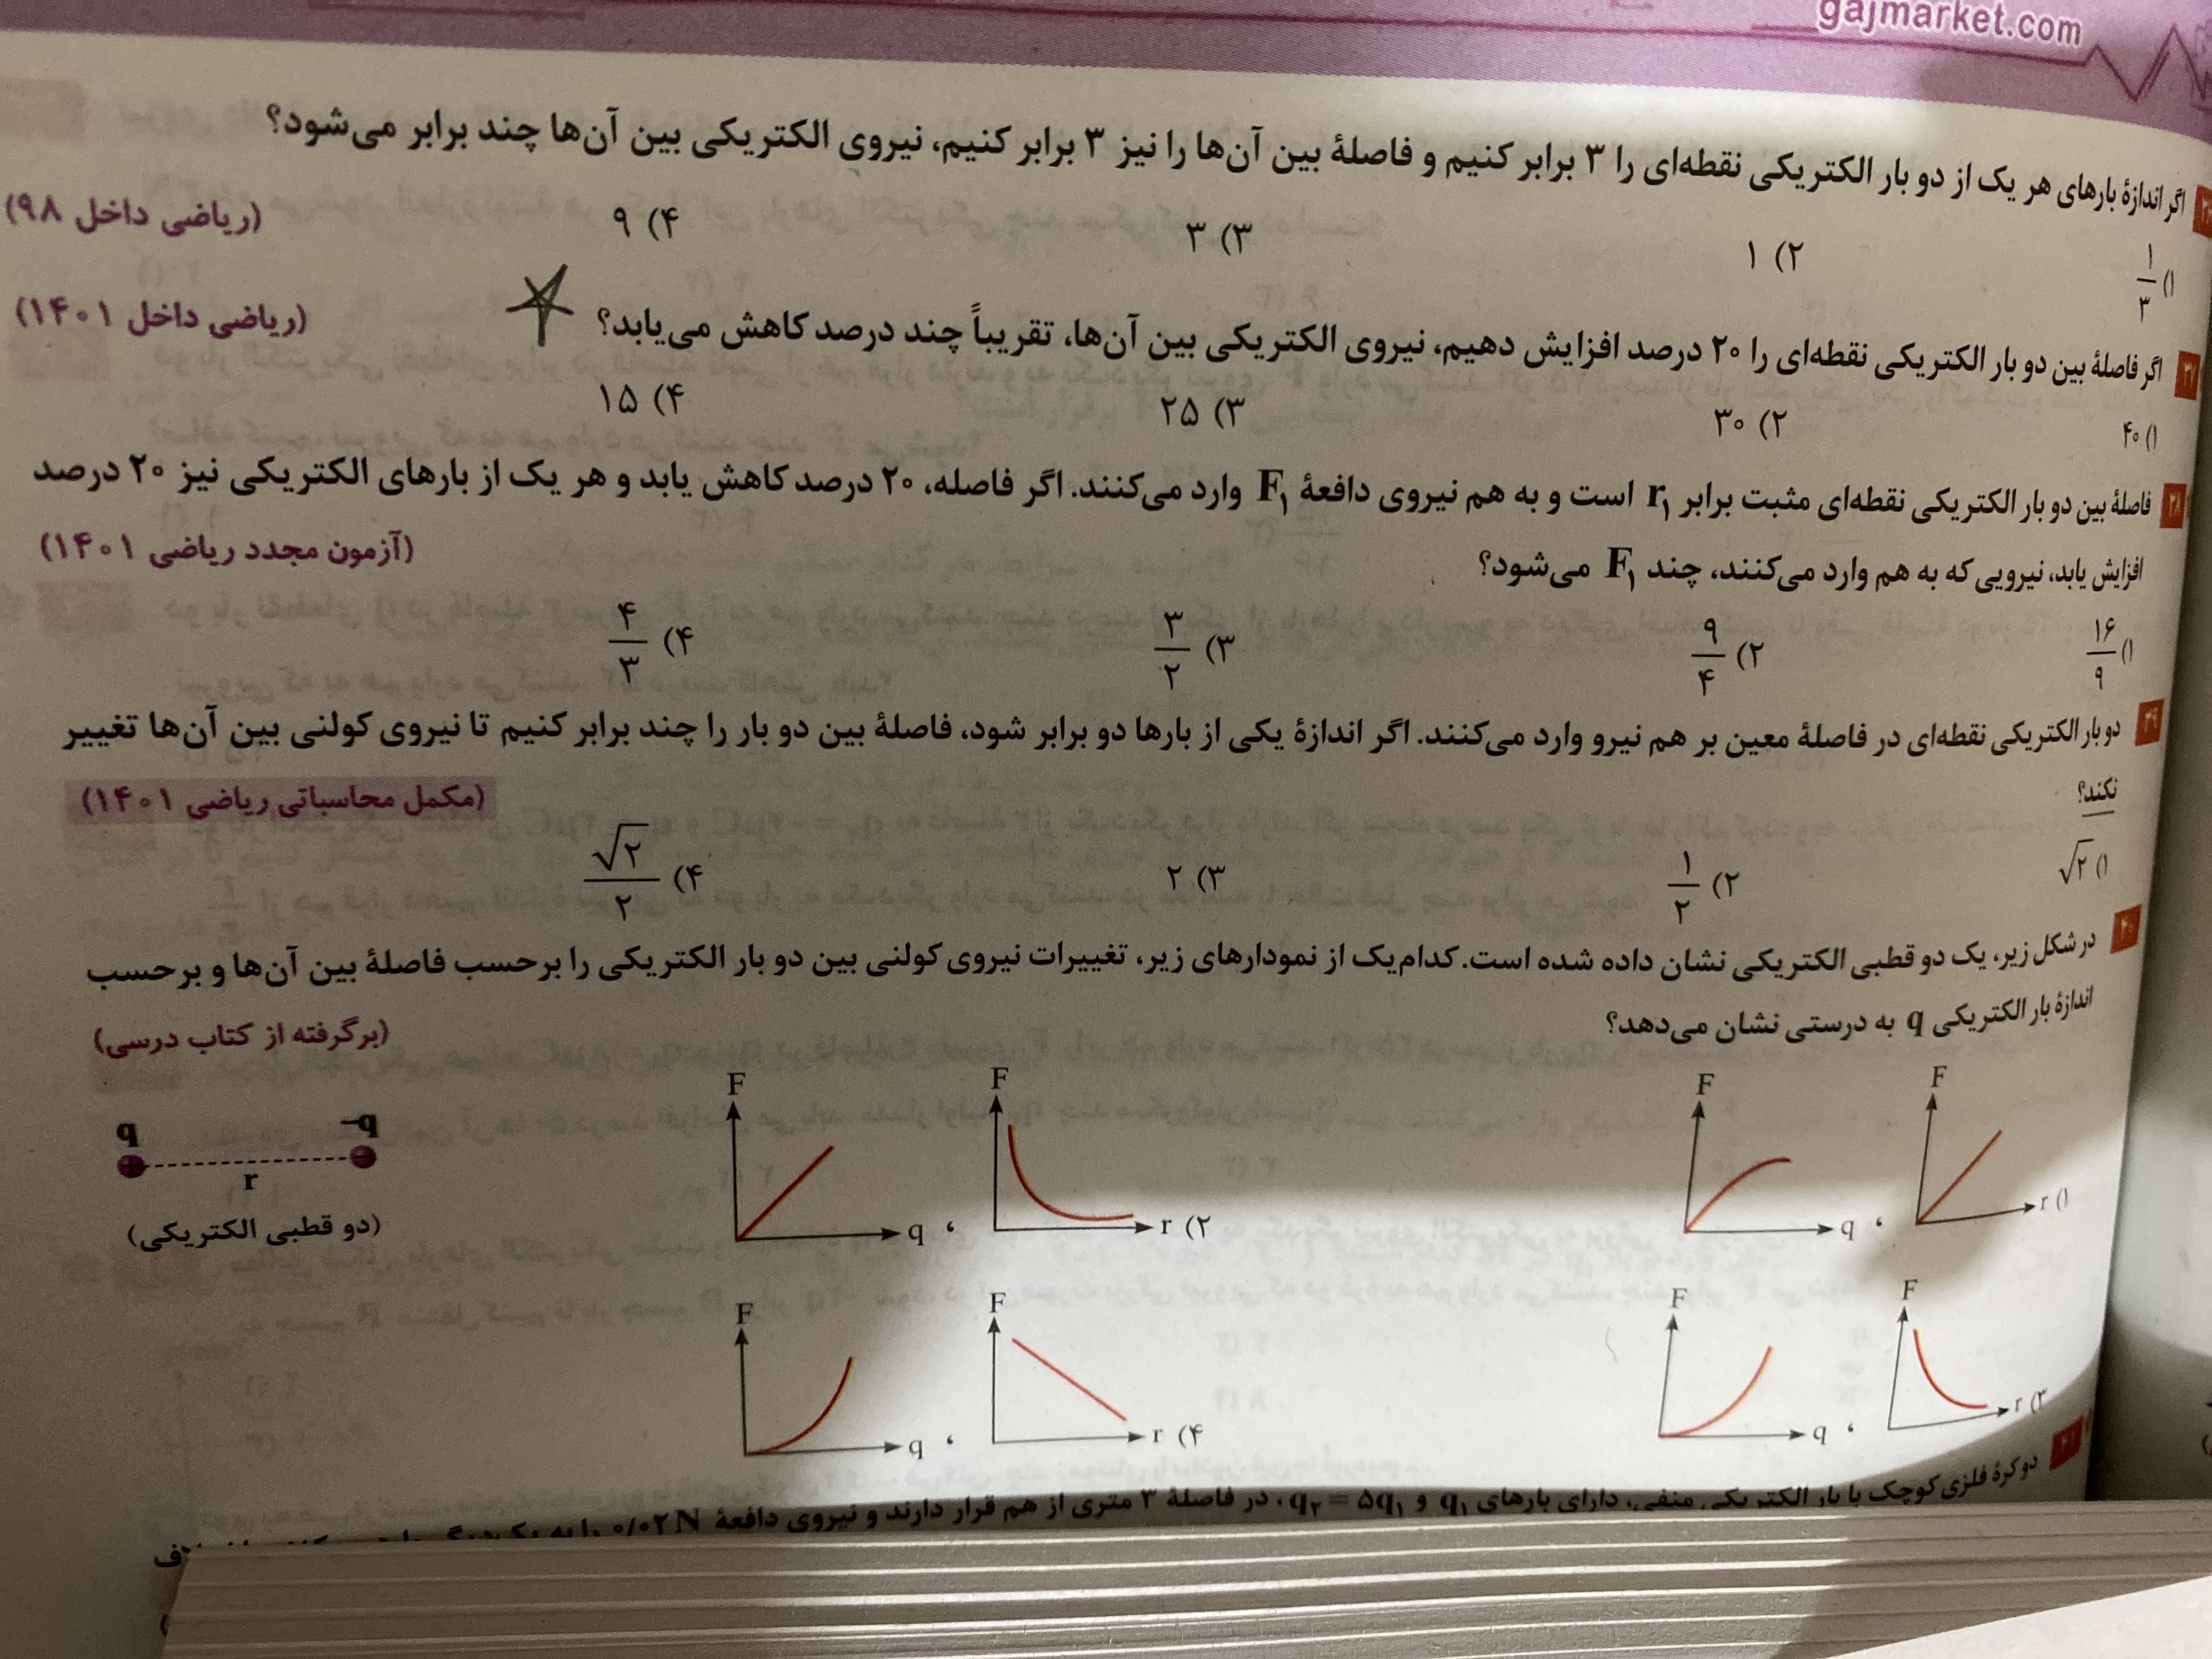 gajmarket.com
اگر اندازهٔ بارهای هر یک از دو بار الکتریکی نقطه‌ای را ۳ برابر کنیم و فاصلهٔ بین آن‌ها را نیز ۳ برابر کنیم، نیروی الکتریکی بین آن‌ها چند برابر می‌شود؟
(ریاضی داخل ۹۸)
۱) ۱/۳ ۲) ۱ ۳) ۳ ۴) ۹
۲۷ اگر فاصلهٔ بین دو بار الکتریکی نقطه‌ای را ۲۰ درصد افزایش دهیم، نیروی الکتریکی بین آن‌ها، تقریباً چند درصد کاهش می‌یابد؟ (ریاضی داخل ۱۴۰۱)
۱) ۴۰ ۲) ۳۰ ۳) ۲۵ ۴) ۱۵
۲۸ فاصلهٔ بین دو بار الکتریکی نقطه‌ای مثبت برابر r₁ است و به هم نیروی دافعهٔ F₁ وارد می‌کنند. اگر فاصله، ۲۰ درصد کاهش یابد و هر یک از بارهای الکتریکی نیز ۲۰ درصد
افزایش یابد، نیرویی که به هم وارد می‌کنند، چند F₁ می‌شود؟ (آزمون مجدد ریاضی ۱۴۰۱)
۱) ۱۶/۹ ۲) ۹/۴ ۳) ۳/۲ ۴) ۴/۳
۲۹ دو بار الکتریکی نقطه‌ای در فاصلهٔ معین بر هم نیرو وارد می‌کنند. اگر اندازهٔ یکی از بارها دو برابر شود، فاصلهٔ بین دو بار را چند برابر کنیم تا نیروی کولنی بین آن‌ها تغییر
نکند؟ (مکمل محاسباتی ریاضی ۱۴۰۱)
۱) √۲ ۲) ۱/۲ ۳) ۲ ۴) √۲/۲
در شکل زیر، یک دو قطبی الکتریکی نشان داده شده است. کدام‌یک از نمودارهای زیر، تغییرات نیروی کولنی بین دو بار الکتریکی را برحسب فاصلهٔ بین آن‌ها و برحسب
اندازهٔ بار الکتریکی q به درستی نشان می‌دهد؟ (برگرفته از کتاب درسی)
F F F F
q -q
r
(دو قطبی الکتریکی)
۱) r ، q ۲) r ، q
F F F F
۳) r ، q ۴) r ، q
دو کرهٔ فلزی کوچک با بار الکتریکی منفی، دارای بارهای q₁ و q₂ = ۵q₁، در فاصلهٔ ۳ متری از هم قرار دارند و نیروی دافعهٔ ۰/۰۲N را به